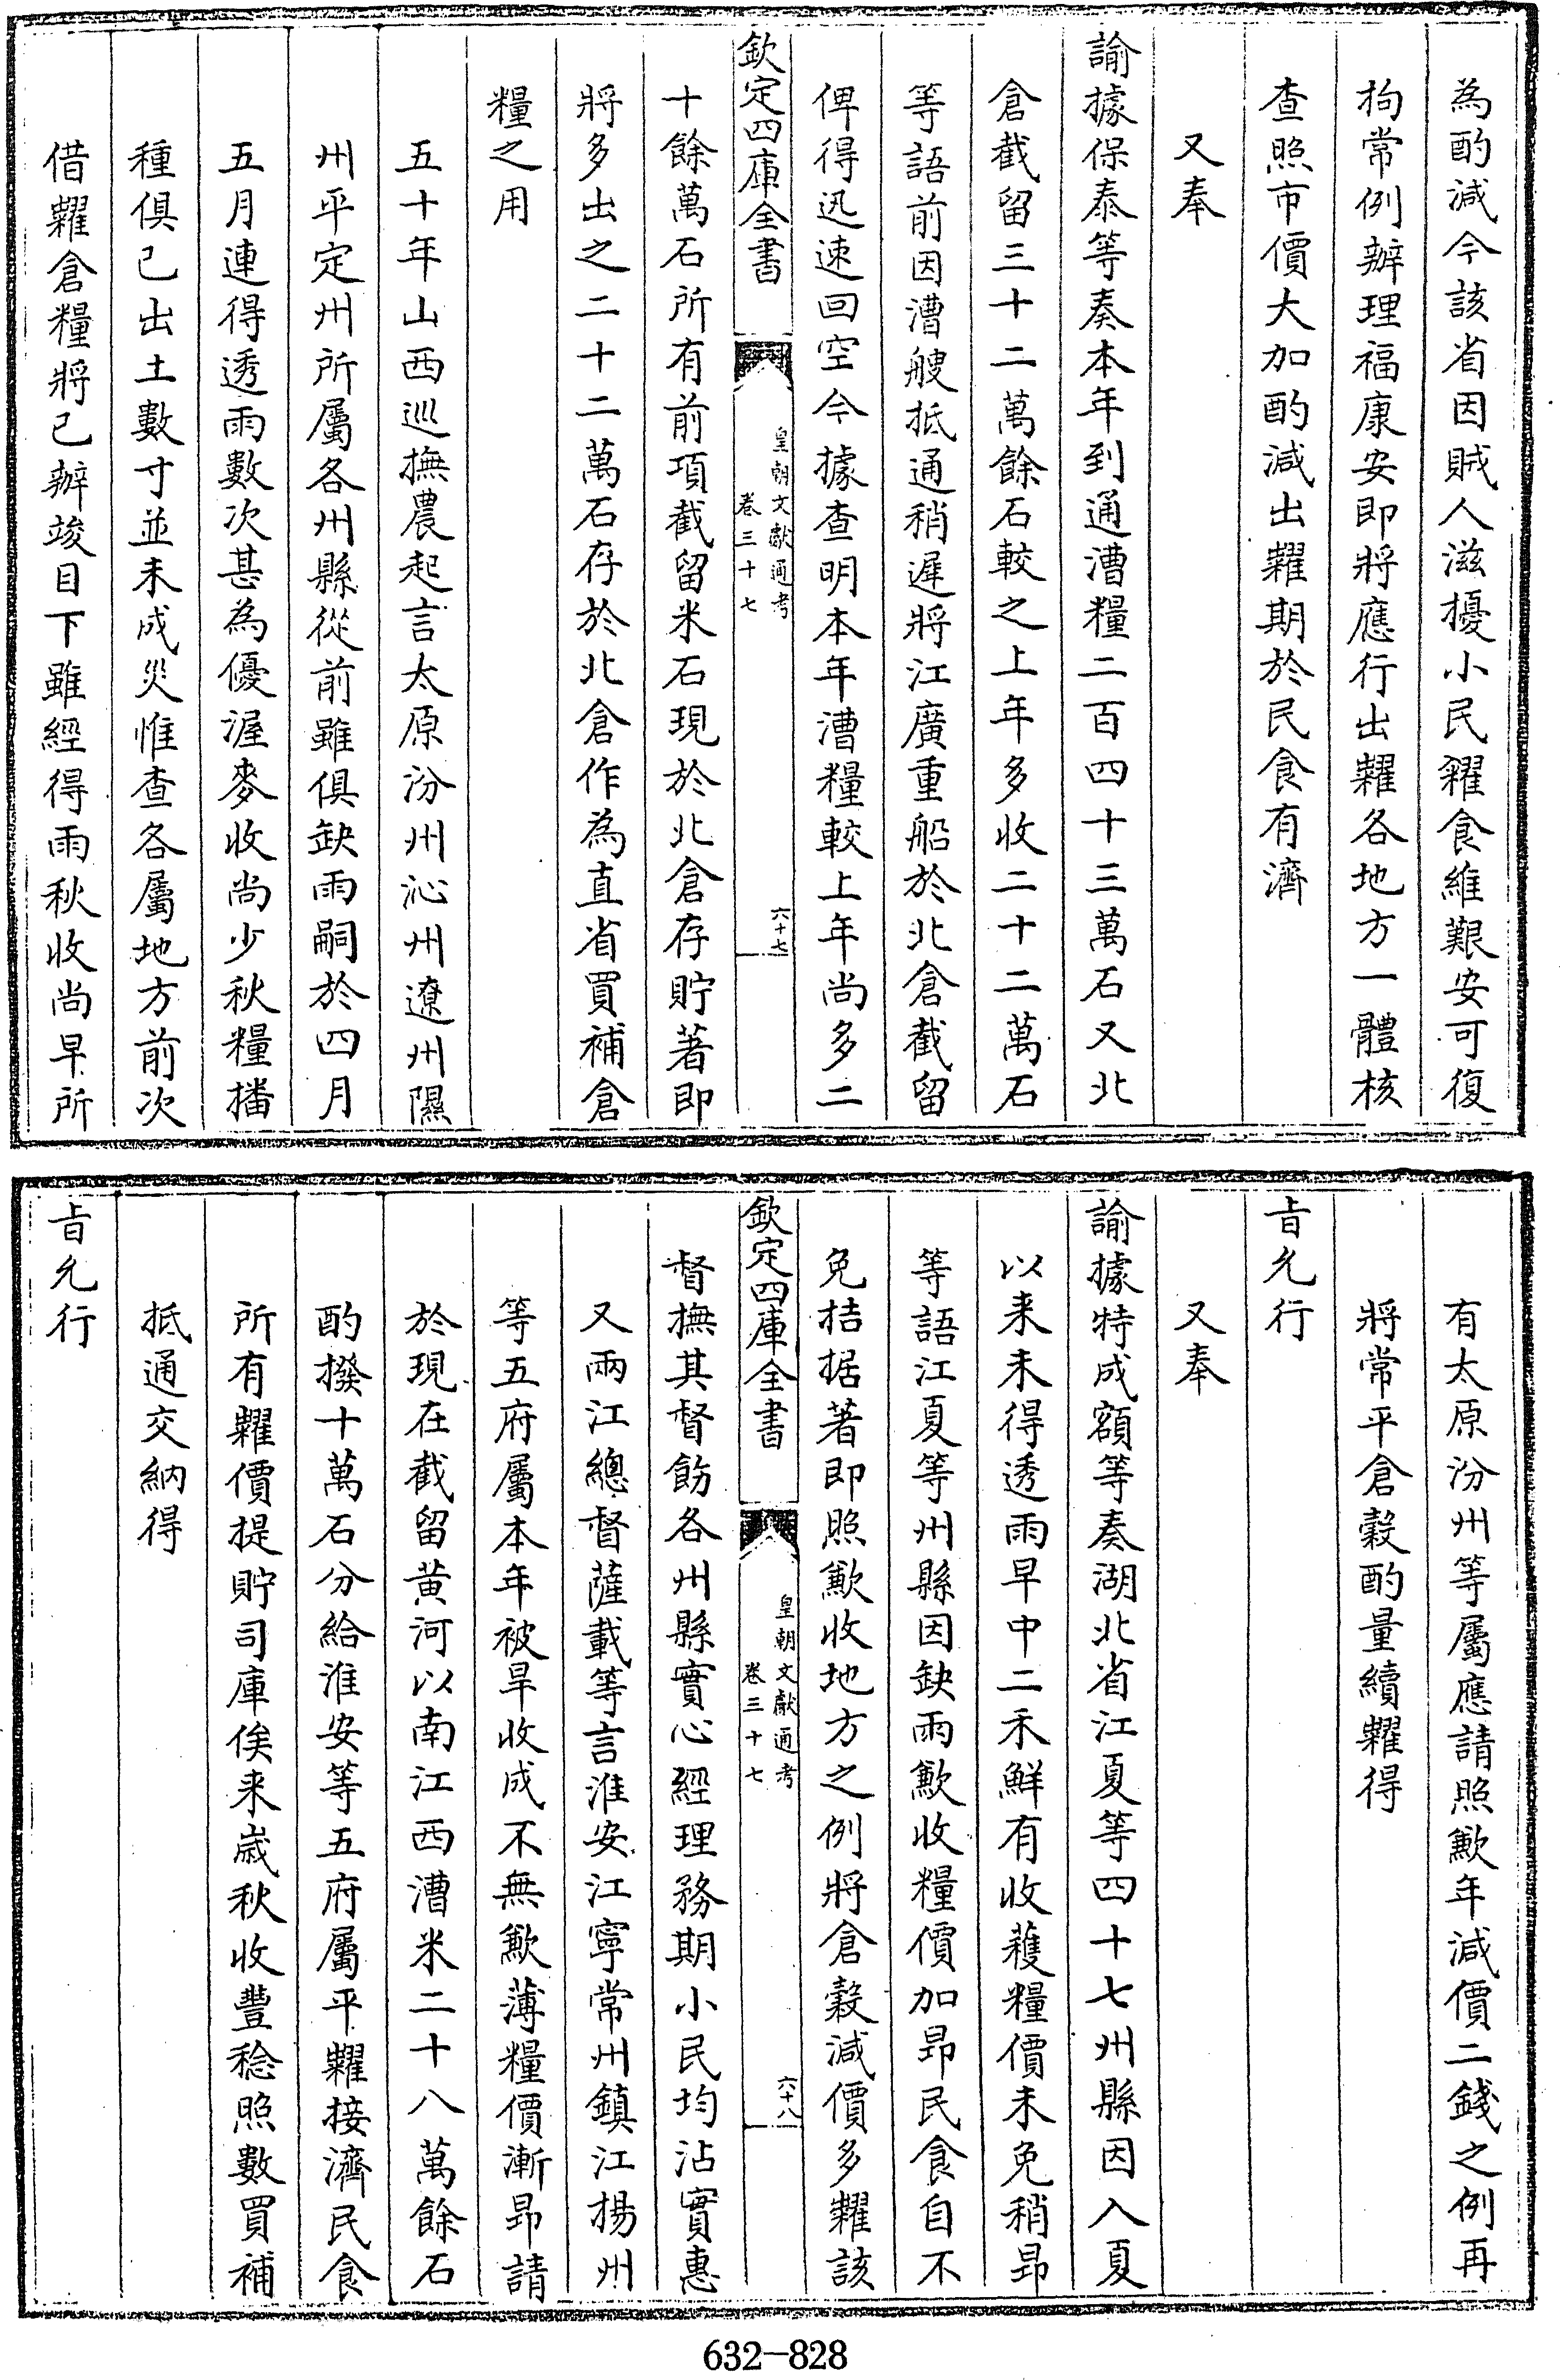 為酌減今該省因賊人滋擾小民糴食維艱安可復
拘常例辦理福康安即將應行出糶各地方一體核
查照市價大加酌減出糶期於民食有濟
又奉
諭據保泰等奏本年到通漕糧二百四十三萬石又北
倉截留三十二萬餘石較之上年多收二十二萬石
等語前因漕艘抵通稍遲將江廣重船於北倉截留
俾得迅速回空今據查明本年漕糧較上年尚多二
欽定四庫全書
皇朝文獻通考
卷三十七
六十七
十餘萬石所有前項截留米石現於北倉存貯著即
將多出之二十二萬石存於北倉作為直省買補倉
糧之用
五十年山西巡撫農起言太原汾州沁州遼州隰
州平定州所屬各州縣從前雖俱缺雨嗣於四月
五月連得透雨數次甚為優渥麥收尚少秋糧播
種俱已出土數寸並未成災惟查各屬地方前次
借糶倉糧將已辦竣目下雖經得雨秋收尚早所
有太原汾州等屬應請照歉年減價二錢之例再
將常平倉穀酌量續糶得
旨允行
又奉
諭據特成額等奏湖北省江夏等四十七州縣因入夏
以来未得透雨早中二禾鮮有收穫糧價未免稍昂
等語江夏等州縣因缺雨歉收糧價加昂民食自不
免拮据著即照歉收地方之例將倉穀減價多糶該
欽定四庫全書
皇朝文獻通考
卷三十七
六十八
督撫其督飭各州縣實心經理務期小民均沾實惠
又兩江總督薩載等言淮安江寧常州鎮江揚州
等五府屬本年被旱收成不無歉薄糧價漸昂請
於現在截留黄河以南江西漕米二十八萬餘石
酌撥十萬石分給淮安等五府屬平糶接濟民食
所有糶價提貯司庫俟来歲秋收豐稔照數買補
抵通交納得
旨允行
632-828